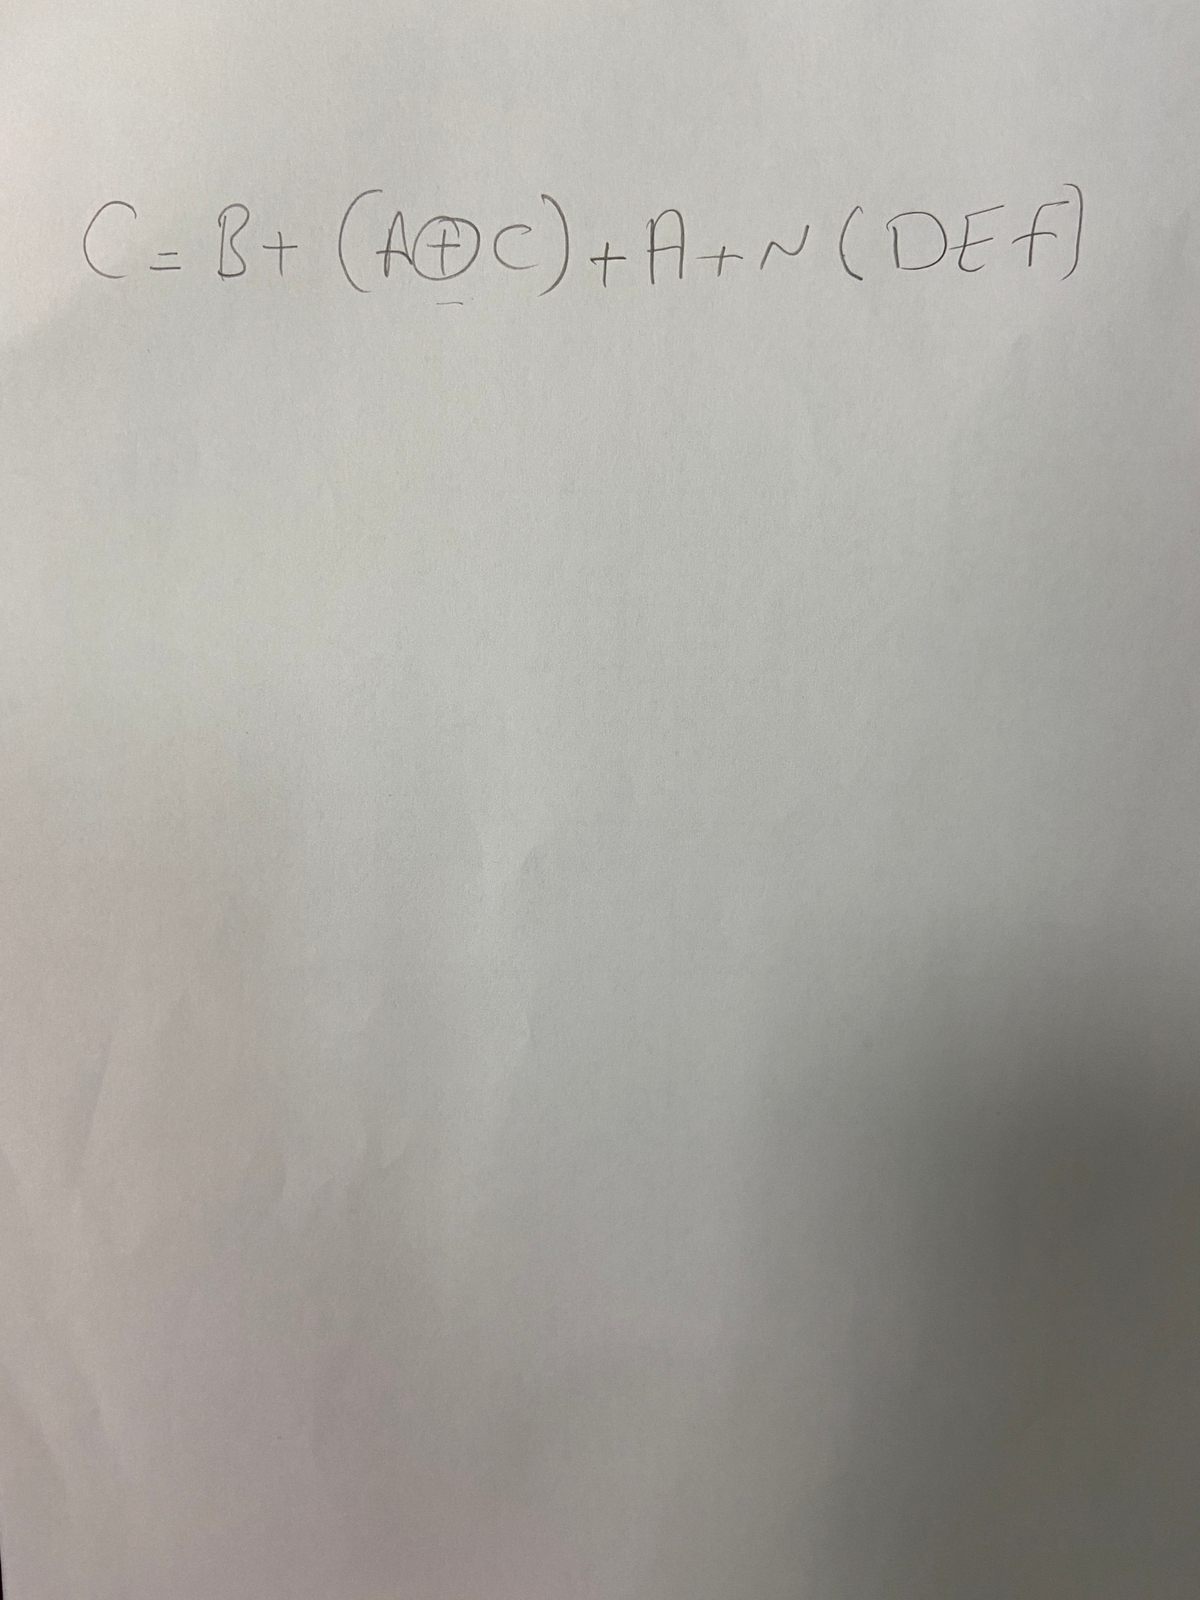 C = B + (A⊕C) + A + N (DEF)